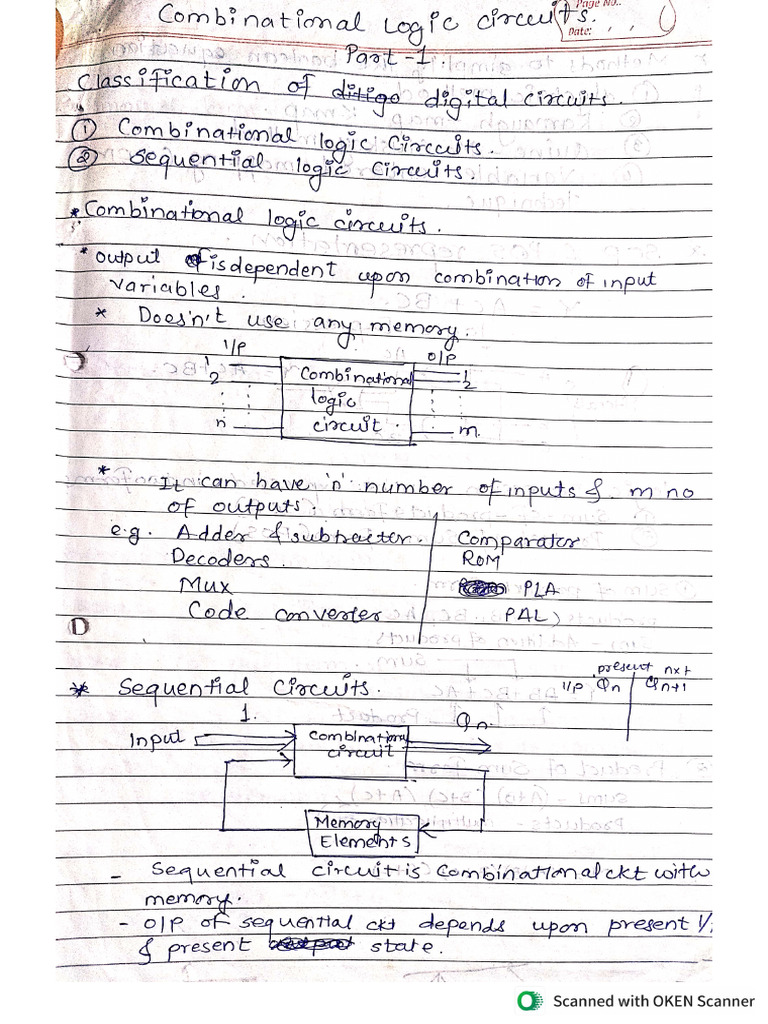 Page No..
Combinational Logic circuits.
Date: , ,
Part-1
Classification of ditigo digital circuits.
① Combinational logic circuits.
② sequential logic circuits.
* Combinational logic circuits.
* output is dependent upon combination of input
variables.
* Does'n't use any memory.
I/P O/P
1 Combinational 1
2 logic 2
n circuit. m.
* It can have 'n' number of inputs & m no
of outputs.
e.g. Adder & subtracter. Comparator
Decoders. ROM
Mux PLA
Code converter PAL)
D
present nxt
* Sequential Circuits. I/P Qn Qn+1
1. Qn.
Input Combinational
circuit
Memory
Elements
- Sequential circuit is Combinational ckt with
memory.
- O/P of sequential ckt depends upon present I/
& present state.
Scanned with OKEN Scanner